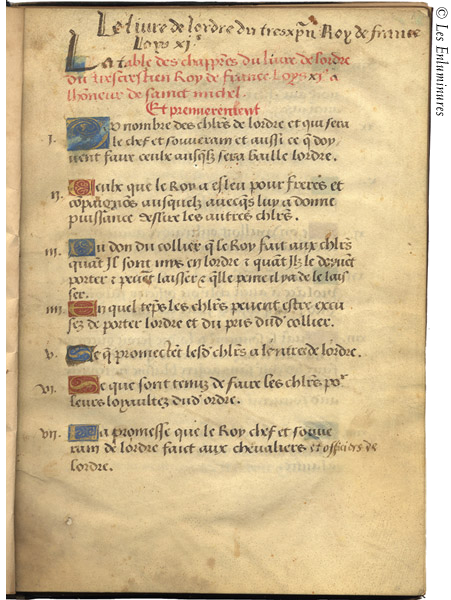 Le livre de lordre du tresxpñ Roy de france
Loys xi.e
La table des chappr̃es du livre de lordre
du trescrestien Roy de france Loys xi.e a
lhõneur de sainct michel.
Et premierement
I. Du nombre des chlr̃s de lordre et qui sera
le chef et souverain et aussi ce q̃ doy
vent faire ceulx ausq̃lz sera baille lordre.
II. Ceulx que le Roy a esleu pour freres et
cõpaignõs ausquelz avecq̃s luy a donne
puissance deslire les autres chlr̃s.
III. Du don du collier q̃ le Roy fait aux chlr̃s
quãt Il sont mys en lordre & quãt Ilz le doyvẽt
porter & peuẽt laisser & q̃lle peine il ya de le lais
ser.
IIII. En quel tẽps les chlr̃s peuvent estre excu
sez de porter lordre et du pris dud' collier.
V. Ce q̃ promectẽt lesd' chlr̃s a lẽtree de lordre.
VI. Ce que sont tenuz de faire les chlr̃s por
leurs loyaultez dud' ordre.
VII. La promesse que le Roy chef et souve
rain de lordre faict aux chevaliers et officiers de
lordre.
© Les Enluminures